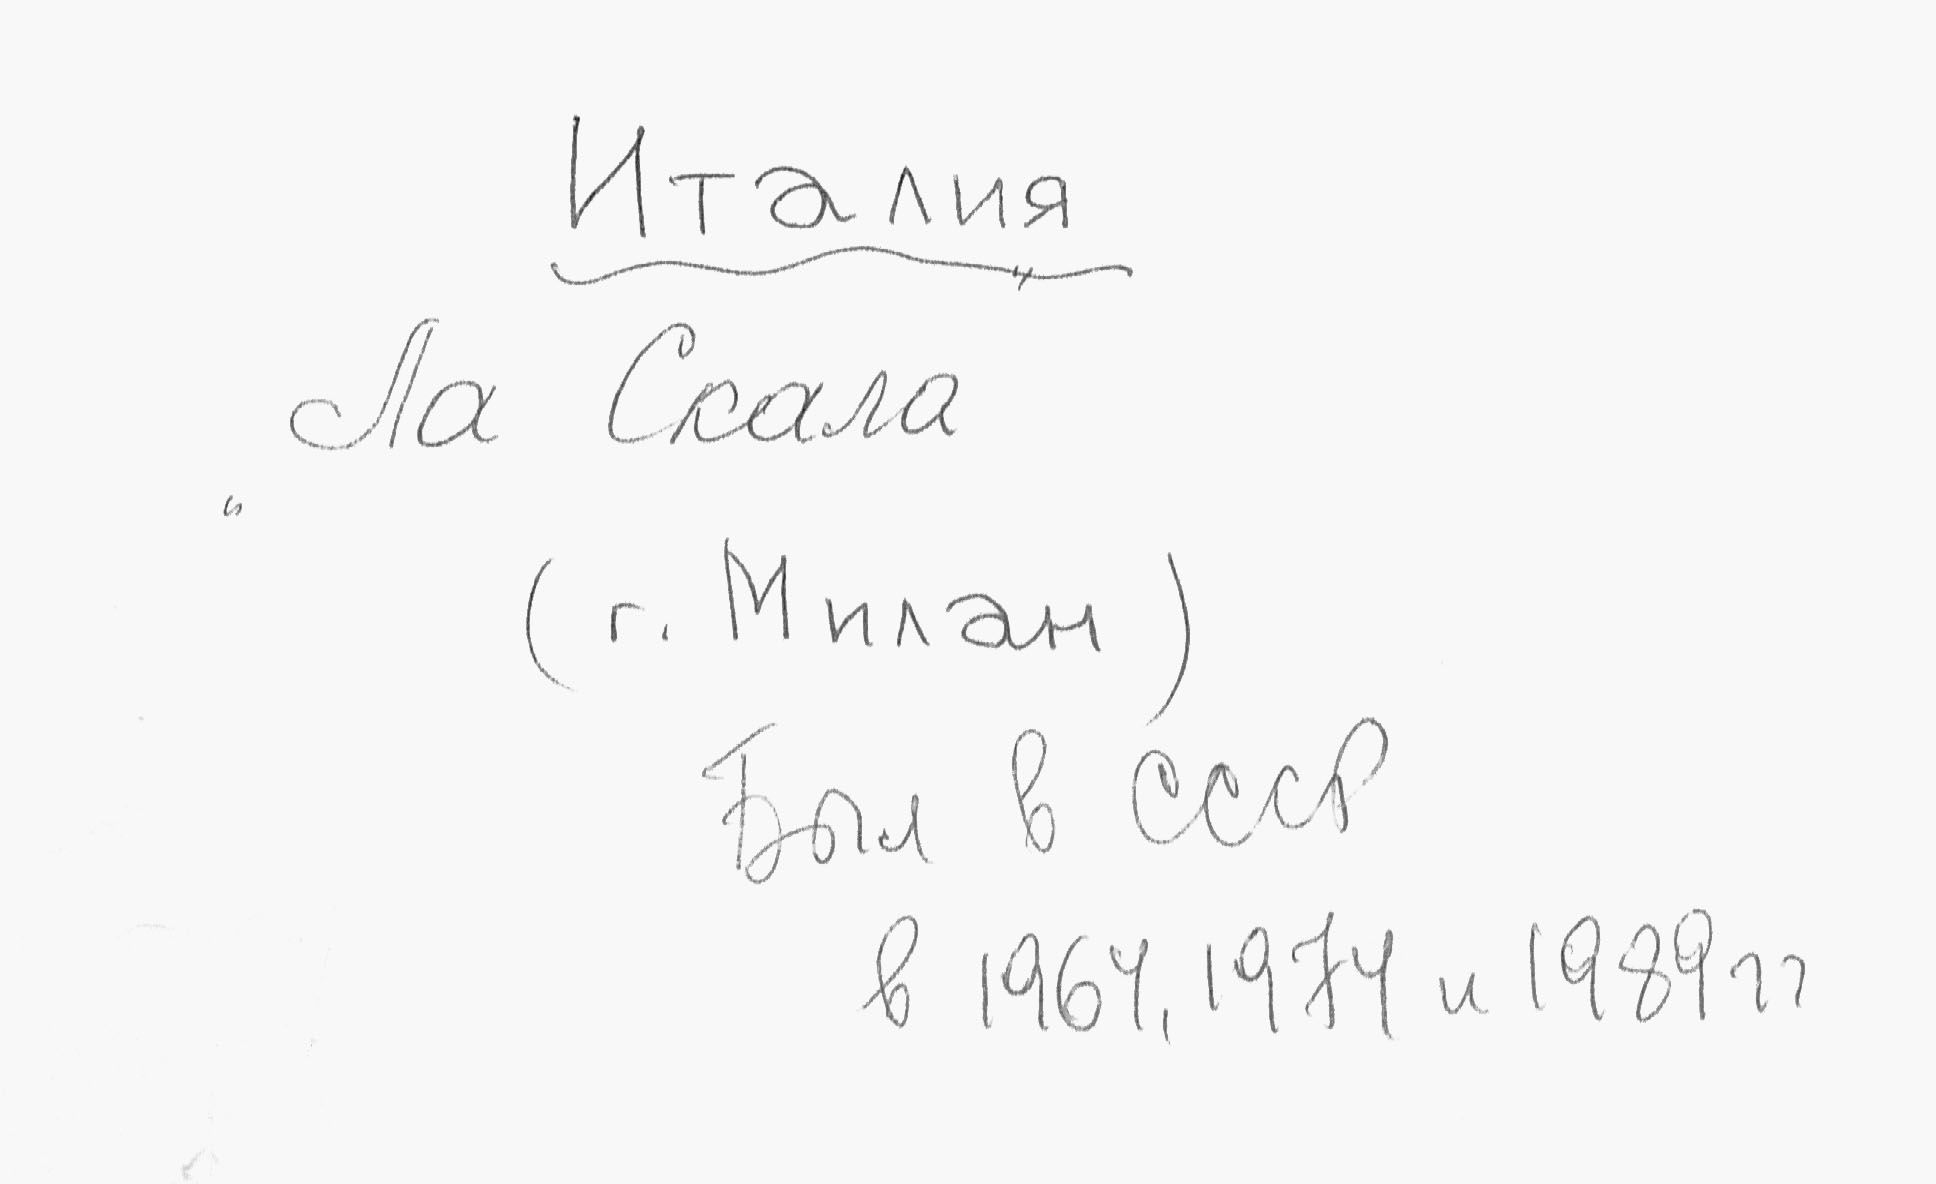 Италия
Ла Скала
(г. Милан)
Был в СССР
в 1964, 1974 и 1989 гг